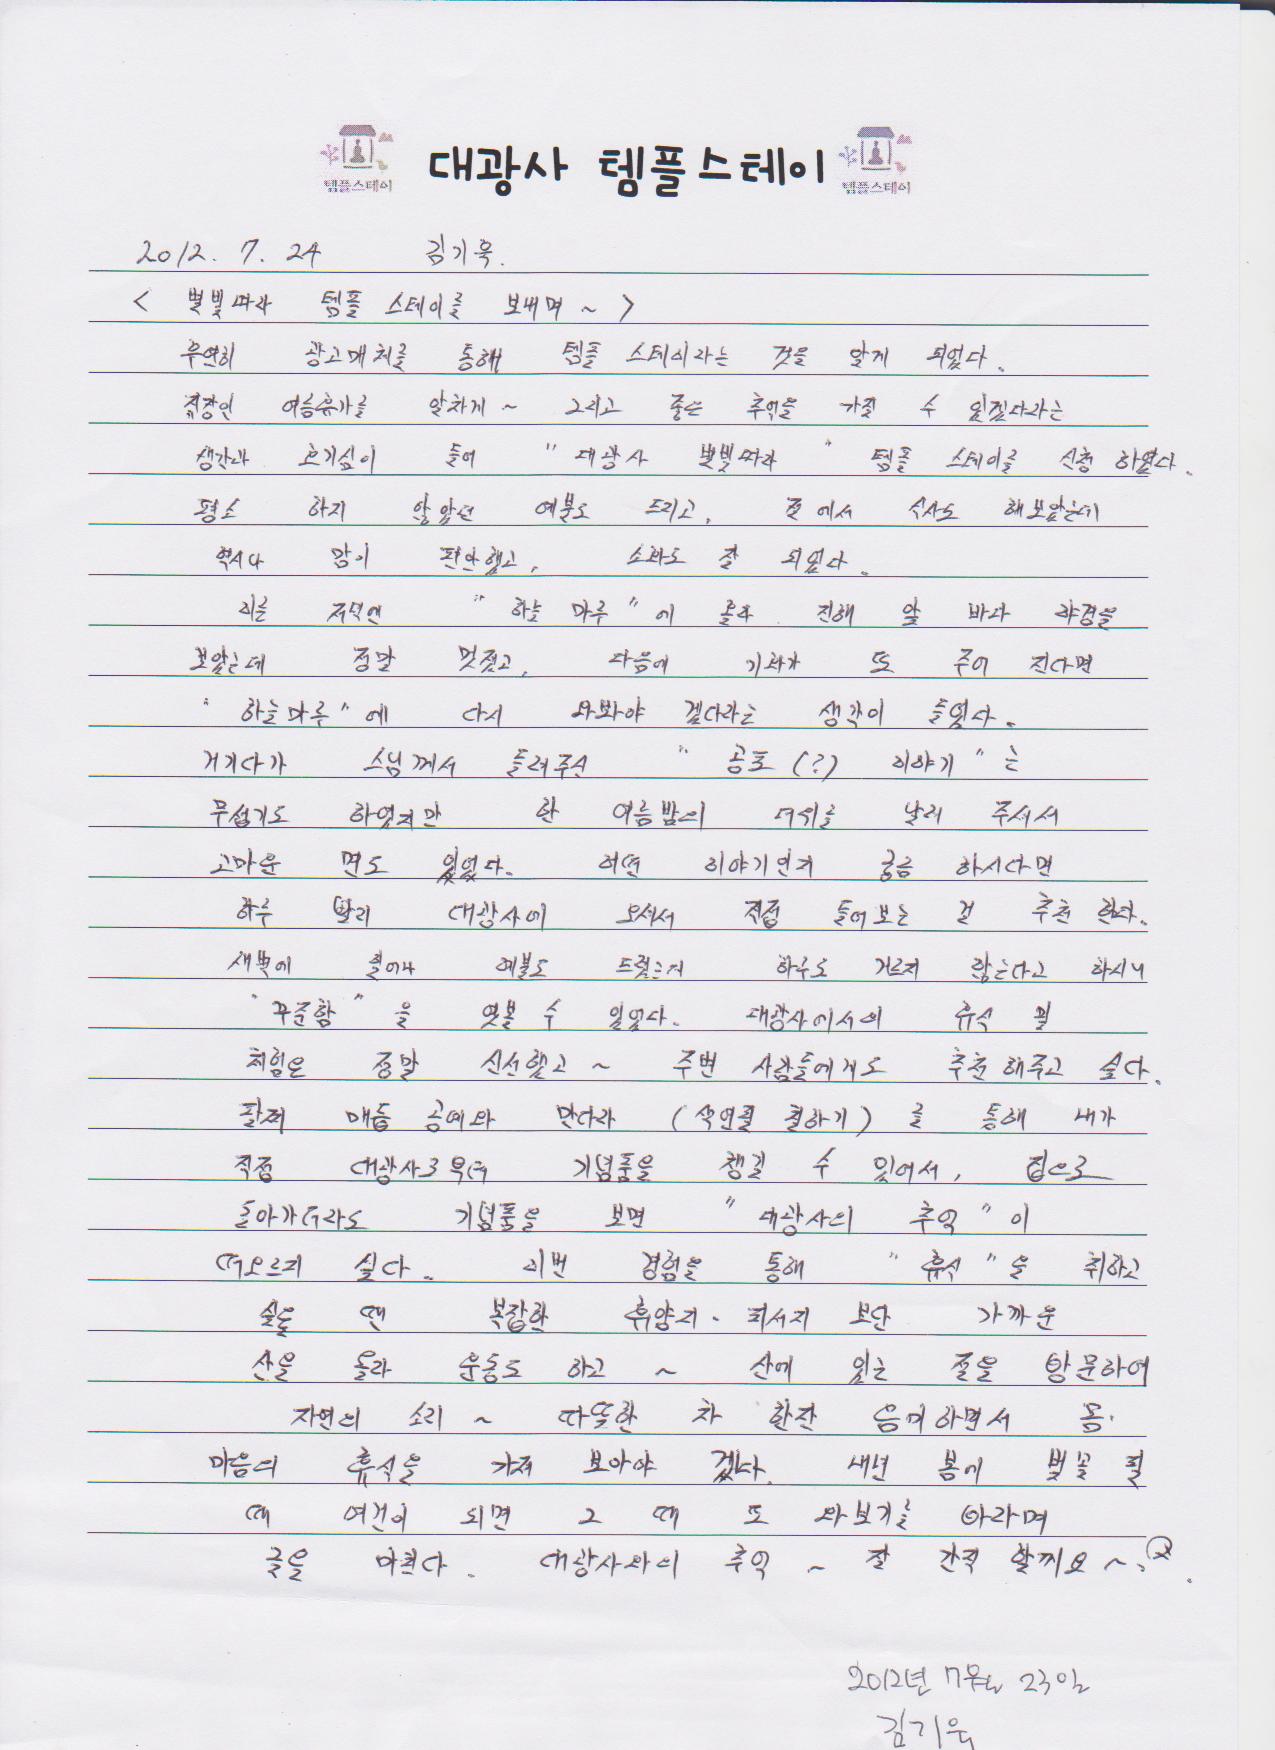 템플스테이 대광사 템플스테이 템플스테이
2012. 7. 24 김기욱.
< 별빛따라 템플 스테이를 보내며 ~ >
우연히 광고매체를 통해 템플 스테이라는 것을 알게 되었다.
직장인 여름휴가를 알차게 ~ 그리고 좋은 추억을 가질 수 있겠다라는
생각과 호기심이 들어 "대광사 별빛따라" 템플 스테이를 신청 하였다.
평소 하지 않았던 예불도 드리고, 절에서 식사도 해보았는데
역시나 맘이 편안했고, 소화도 잘 되었다.
이른 저녁엔 "하늘 마루"에 올라 진해 앞 바다 야경을
보았는데 정말 멋졌고, 다음에 기회가 또 주어 진다면
"하늘마루"에 다시 와봐야 겠다라는 생각이 들었다.
거기다가 스님께서 들려주신 "공포(?) 이야기"는
무섭기도 하였지만 한 여름밤의 더위를 날려 주셔서
고마운 면도 있었다. 어떤 이야기인지 궁금 하시다면
하루 빨리 대광사에 오셔서 직접 들어보는 걸 추천 한다.
새벽에 일어나 예불도 드렸는데 하루도 거르지 않는다고 하시니
"꾸준함"을 엿볼 수 있었다. 대광사에서의 휴식 및
체험은 정말 신선했고 ~ 주변 사람들에게도 추천해주고 싶다.
팔찌 매듭 공예와 만다라 (색연필 칠하기)를 통해 내가
직접 대광사로부터 기념품을 챙길 수 있어서, 집으로
돌아가더라도 기념품을 보면 "대광사의 추억"이
떠오르지 싶다. 이번 경험을 통해 "휴식"을 취하고
싶을 땐 복잡한 휴양지·피서지 보단 가까운
산을 올라 운동도 하고 ~ 산에 있는 절을 방문하여
자연의 소리 ~ 따뜻한 차 한잔 음미하면서 몸·
마음의 휴식을 가져 보아야 겠다. 내년 봄에 벚꽃 필
때 여건이 되면 그 때 또 와보기를 바라며
글을 마친다. 대광사와의 추억 ~ 잘 간직 할께요 ~
2012년 7월 23일
김기욱